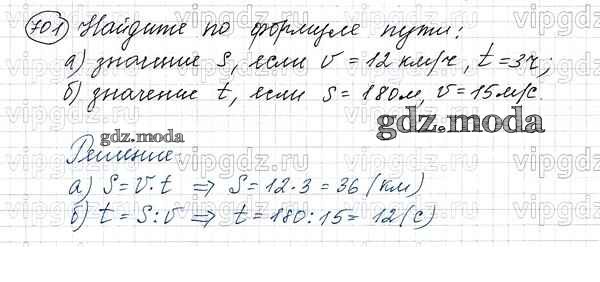 701 Найдите по формуле пути:
а) значение S, если v = 12 км/ч, t = 3ч;
б) значение t, если S = 180м, v = 15м/с.
gdz.moda
gdz.moda
Решение
а) S = v·t ⇒ S = 12·3 = 36 (км)
б) t = S:v ⇒ t = 180:15 = 12 (с)